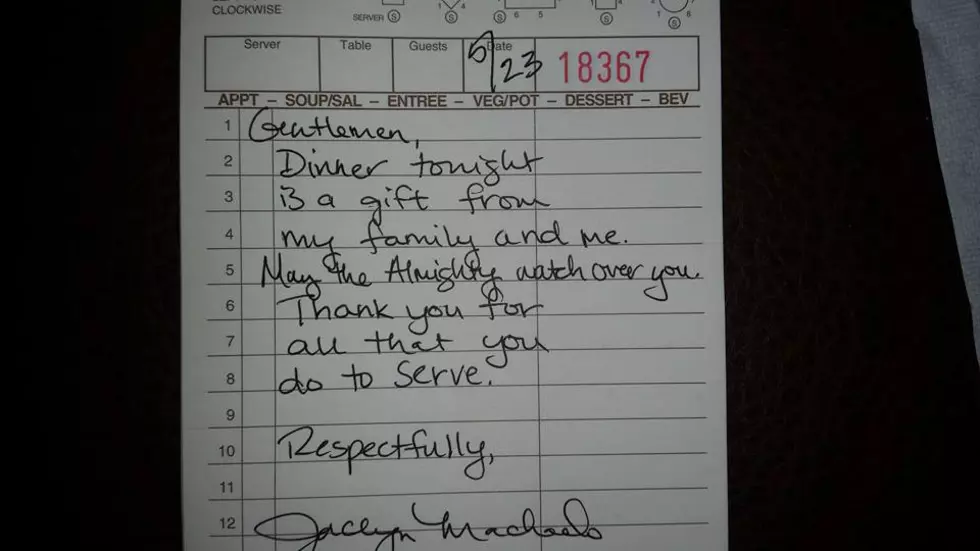 CLOCKWISE
SERVER S S S 6 5 S 1 S 6
Server Table Guests Date 5/23 18367
APPT – SOUP/SAL – ENTREE – VEG/POT – DESSERT – BEV
1 Gentlemen,
2 Dinner tonight
3 is a gift from
4 my family and me.
5 May the Almighty watch over you.
6 Thank you for
7 all that you
8 do to serve.
9
10 Respectfully,
11
12 Jaclyn Machado